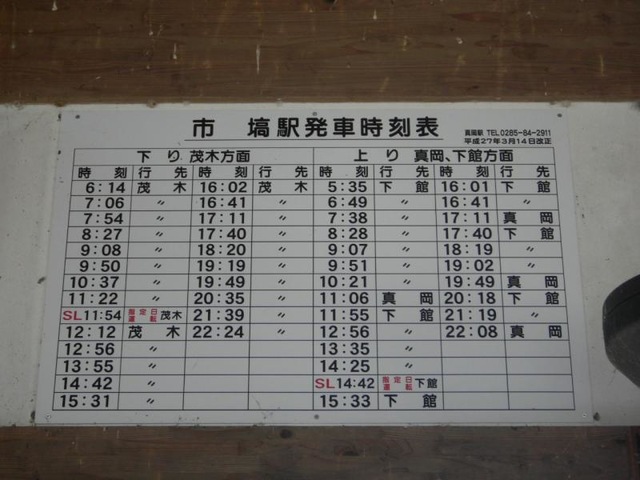 市塙駅発車時刻表
真岡駅 TEL0285-84-2911
平成27年3月14日改正
下り 茂木方面 上り 真岡、下館方面
時刻 行先 時刻 行先 時刻 行先 時刻 行先
6:14 茂木 16:02 茂木 5:35 下館 16:01 下館
7:06 〃 16:41 〃 6:49 〃 16:41 〃
7:54 〃 17:11 〃 7:38 〃 17:11 真岡
8:27 〃 17:40 〃 8:28 〃 17:40 下館
9:08 〃 18:20 〃 9:07 〃 18:19 〃
9:50 〃 19:19 〃 9:51 〃 19:02 〃
10:37 〃 19:49 〃 10:21 〃 19:49 真岡
11:22 〃 20:35 〃 11:06 真岡 20:18 下館
SL11:54 指定日運転 茂木 21:39 〃 11:55 下館 21:19 〃
12:12 茂木 22:24 〃 12:56 〃 22:08 真岡
12:56 〃 13:35 〃
13:55 〃 14:25 〃
14:42 〃 SL14:42 指定日運転 下館
15:31 〃 15:33 下館